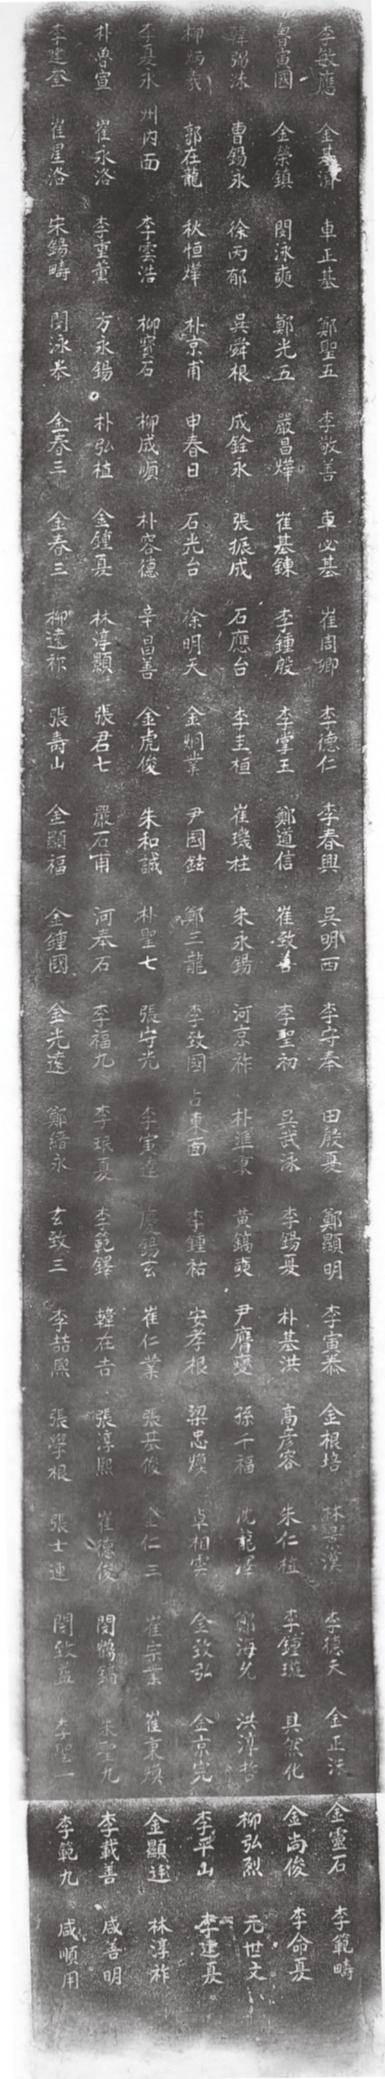 李敏應 金基濟 車正基 鄭聖五 李敬善 車必基 崔周卿 李德仁 李春興 吳明西 李守奉 田殷夏 鄭顯明 李寅泰 金根培 林景漢 李德天 金正沃 金靈石 李範疇
魯寅國 金榮鎮 閔泳奭 鄭光五 嚴昌燁 崔基鍊 李鍾殷 李掌玉 鄭道信 崔致善 李聖初 吳武泳 李錫夏 朴基洪 高彦容 朱仁植 李鍾璇 具然化 金尚俊 李命夏
韓弼洙 曹錫永 徐丙郁 吳舜根 成銓永 張振成 石應台 李圭桓 崔璣柱 朱永錫 河京祚 朴準東 黃鎬奭 尹膺燮 孫千福 沈龍澤 鄭海允 洪淳哲 柳弘烈 元世文
柳炳羲 郭在龍 秋恒燁 朴京甫 申春日 石光台 徐明天 金炯業 尹國鉉 鄭三龍 李致國 占東面 李鍾祐 安孝根 梁忠煥 卓相雲 金致弘 金京完 李平山 李建夏
李夏永 州內面 李雲浩 柳寶石 柳成順 朴容德 辛昌善 金虎俊 朱和誠 朴聖七 張守光 李寅達 慶錫玄 崔仁業 張基俊 金仁三 崔宗業 崔東煥 金顯達 林淳祚
朴魯宣 崔永洛 李重董 方永錫 朴弘植 金鍾夏 林淳顯 張君七 嚴石甫 河奉石 李福九 李琅夏 李範鐸 韓在吉 張淳熙 崔德俊 閔鶴鎬 朱聖九 李載善 咸善明
李建奎 崔星洛 宋錫疇 閔泳泰 金春三 金春三 柳遠祚 張壽山 金顯福 金鍾國 金光遠 鄭緖永 玄致三 李喆熙 張學根 張士連 閔致益 李聖一 李範九 咸順用